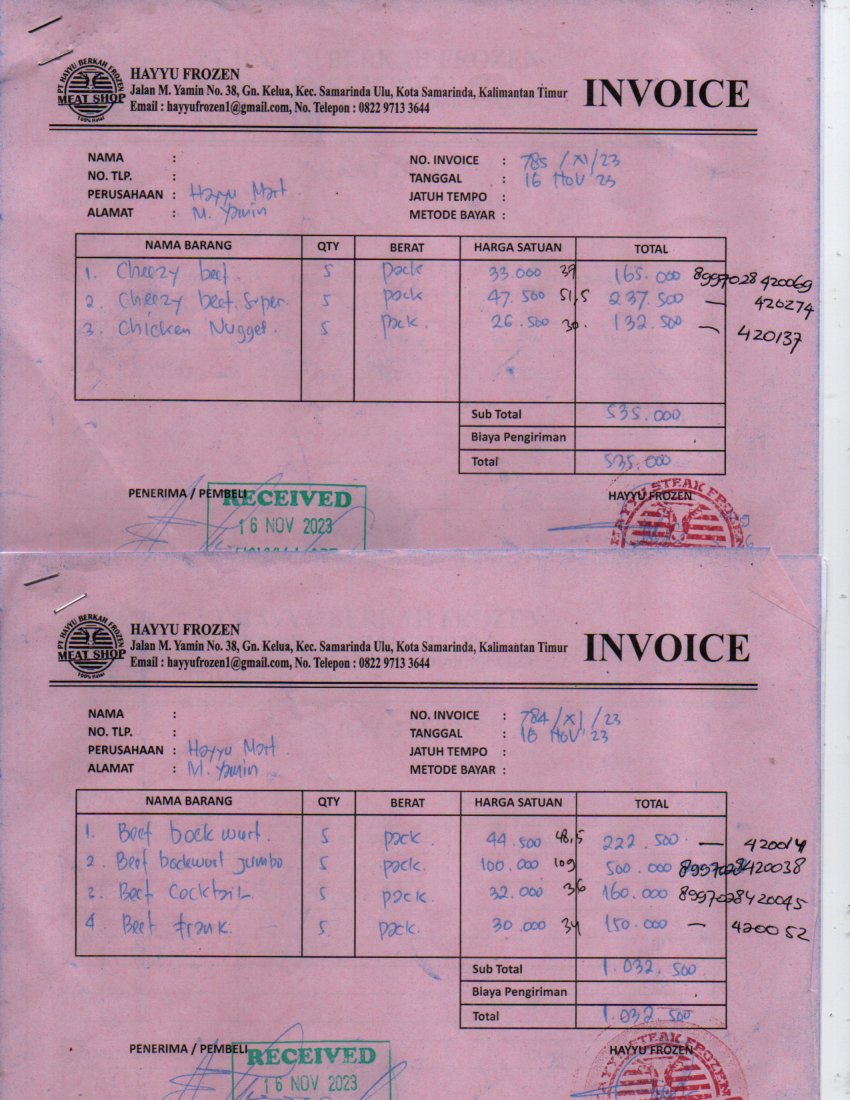 PT HAYYU BERKAH FROZEN
MEAT SHOP
100% Halal
HAYYU FROZEN
Jalan M. Yamin No. 38, Gn. Kelua, Kec. Samarinda Ulu, Kota Samarinda, Kalimantan Timur
Email : hayyufrozen1@gmail.com, No. Telepon : 0822 9713 3644
INVOICE
NAMA :
NO. TLP. :
PERUSAHAAN : Hayyu Mart
ALAMAT : M. Yamin
NO. INVOICE : 785 /XI/23
TANGGAL : 16 Nov 23
JATUH TEMPO :
METODE BAYAR :
NAMA BARANG QTY BERAT HARGA SATUAN TOTAL
1. Cheezy beef. 5 pack 33.000 37 165.000 8997028420069
2. Cheezy beef. Super. 5 pack 47.500 51,5 237.500 — 420274
3. Chicken Nugget. 5 pack. 26.500 30. 132.500 — 420137
Sub Total 535.000
Biaya Pengiriman
Total 535.000
PENERIMA / PEMBELI
RECEIVED
16 NOV 2023
HAYYU FROZEN
HAYYU STEAK FROZEN
PT HAYYU BERKAH FROZEN
MEAT SHOP
100% Halal
HAYYU FROZEN
Jalan M. Yamin No. 38, Gn. Kelua, Kec. Samarinda Ulu, Kota Samarinda, Kalimantan Timur
Email : hayyufrozen1@gmail.com, No. Telepon : 0822 9713 3644
INVOICE
NAMA :
NO. TLP. :
PERUSAHAAN : Hayyu Mart.
ALAMAT : M. Yamin
NO. INVOICE : 784/XI/23
TANGGAL : 16 Nov '23
JATUH TEMPO :
METODE BAYAR :
NAMA BARANG QTY BERAT HARGA SATUAN TOTAL
1. Beef bockwurt. 5 pack. 44.500 48,5 222.500. — 420014
2. Beef bockwurt jumbo 5 pack. 100.000 109 500.000 8997028420038
3. Beef Cocktail 5 pack. 32.000 36 160.000 8997028420045
4 Beef frank. 5 pack. 30.000 34 150.000 — 420052
Sub Total 1.032.500
Biaya Pengiriman
Total 1.032.500
PENERIMA / PEMBELI
RECEIVED
16 NOV 2023
HAYYU FROZEN
HAYYU STEAK FROZEN